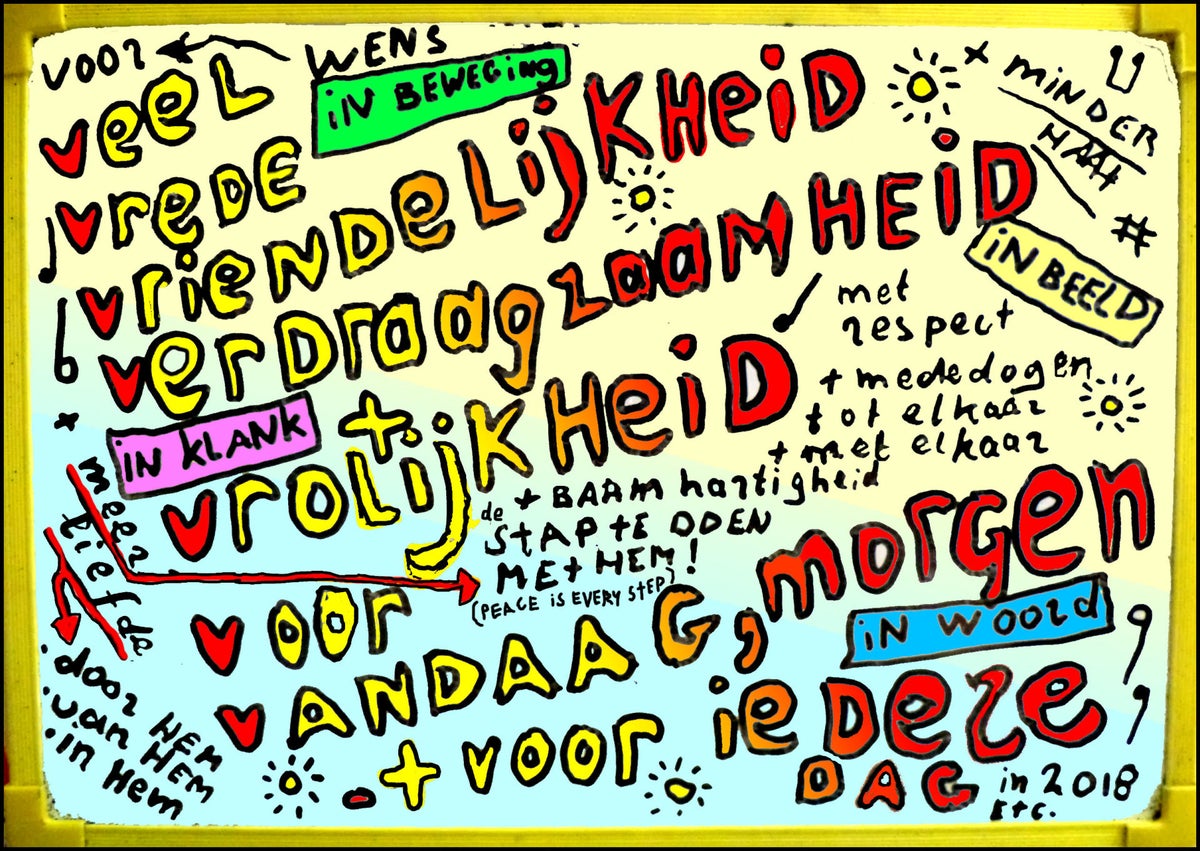 voor
WENS
iN BEWEGing
veeL
vreDE
vrieNDeLijKHeiD
verDraagzaamHEiD
+ miNDER
HAAt
#
iN BEELD
met
respect
+ mededogen
tot elkaar
+ met elkaar
iN KLANK
+
vroLijKHeiD
+ BARMhartigheid
de STAP TE DOEN
MEt HEM!
(PEACE iS EVERY STEP)
meer
Liefde
voor
vANDAAG, morgen
iN woord
+ voor ieDeze
DAG in 2018
Etc.
.door HEM
.van HEM
.in Hem